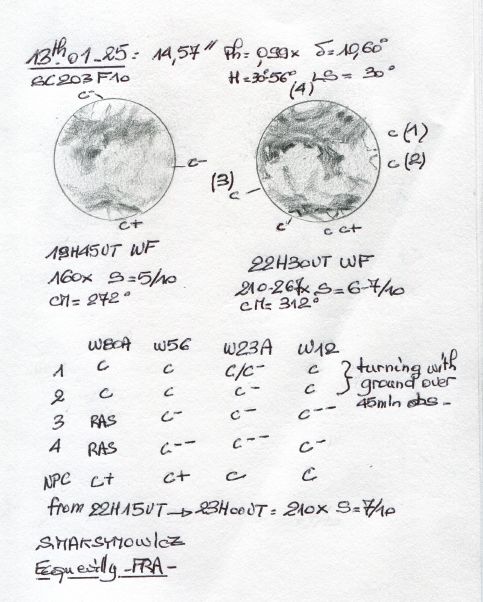 13th.01-25: 14,57" Ph=0,99x δ=10,60°
SC203F10 H=30°56° LS=30°
(4)
c-
c (1)
c-
c (2)
(3)
c
c+
c
c c+
19H45UT WF
160x S=5/10
CM=272°
22H30UT WF
210-267x S=6-7/10
CM=312°
W80A W56 W23A W12
1 c c c/c- c
2 c c c- c
turning with
ground over
45min obs-
3 RAS c- c- c--
4 RAS c-- c-- c-
NPC c+ c+ c c
from 22H15UT → 23H00UT= 210x S=7/10
S.MAKSYMOWICZ
Ecquevilly -FRA-